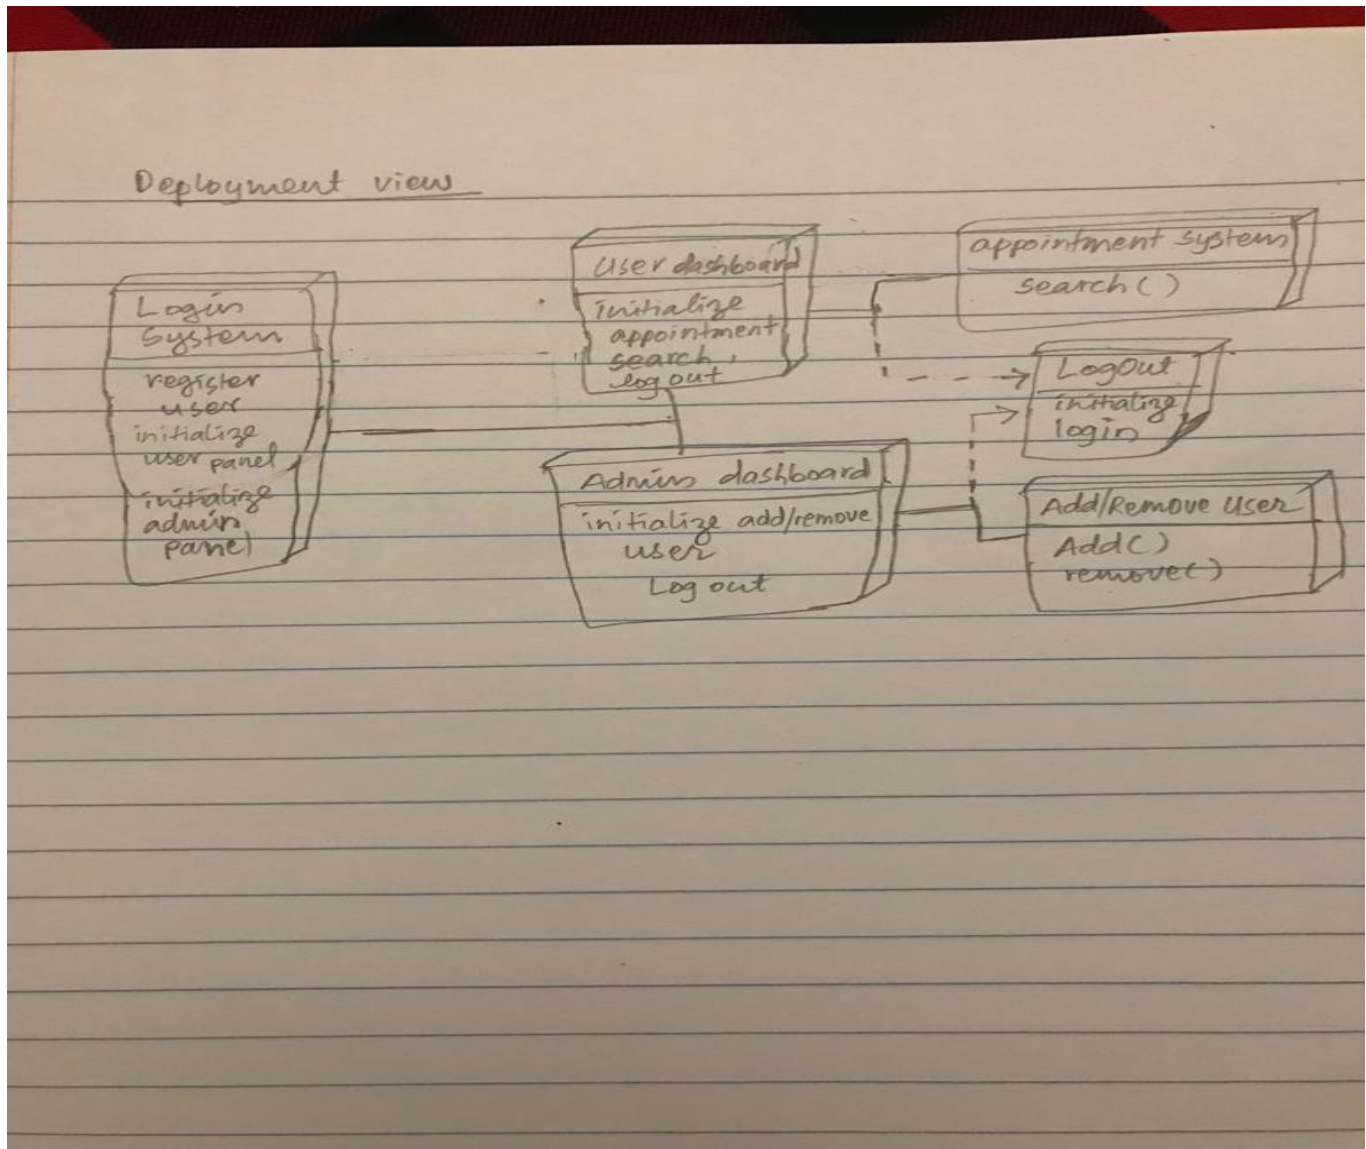 Deployment view
Login
System
register
user
initialize
user panel
initialize
admin
panel
User dashboard
initialize
appointment
search,
log out
Admin dashboard
initialize add/remove
user
Log out
appointment system
search()
LogOut
initialize
login
Add/Remove User
Add()
remove()